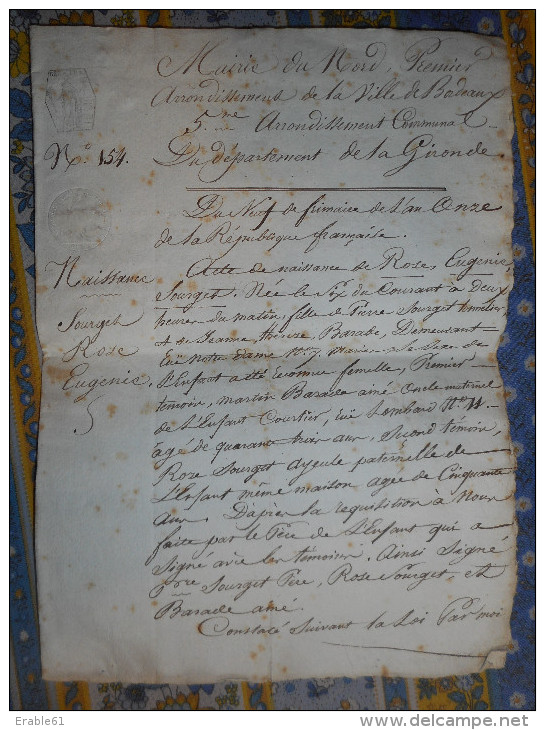 Mairie du Nord, Premier
Arrondissement de la Ville de Bordeaux
5me Arrondissement Communal
N.o 154. Du département de la Gironde
Du Neuf de frimaire de l'an Onze
de la République française.
Naissance
Sourget
Rose
Eugenie.
Acte de naissance de Rose, Eugenie,
Sourget. Née le Six du Courant a deux
heures du matin, fille de Pierre Sourget tonnelier
et de Jeanne Thérèse, Barade, Demeurant
rüe Notre Dame No. 7. mariés. Le Sexe de
L'Enfant a été reconnu femelle, Premier
témoin, martin Barade ainé Oncle maternel
de L'Enfant Courtier, rüe Lombard No. 11.
agé de quarante trois ans, Second témoin,
Roze Sourget ayeule paternelle de
L'Enfant même maison agée de Cinquante
ans. Dapres la requisition à Nous
faite par le Père de L'Enfant qui a
Signé avec les témoins. Ainsi Signé
Pre Sourget Père, Rose Sourget, et
Barade ainé
Constaté Suivant la Loi Par moi
Erable61
www.delcampe.net